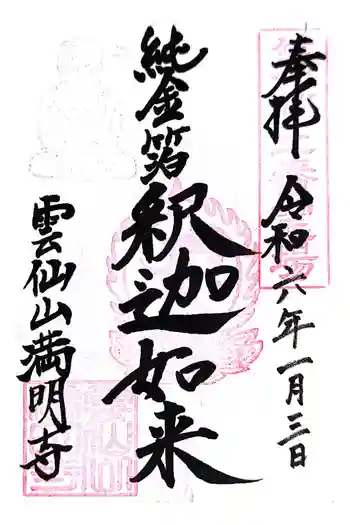 奉拝
令和六年一月三日
純金箔
釈迦如来
雲仙山満明寺